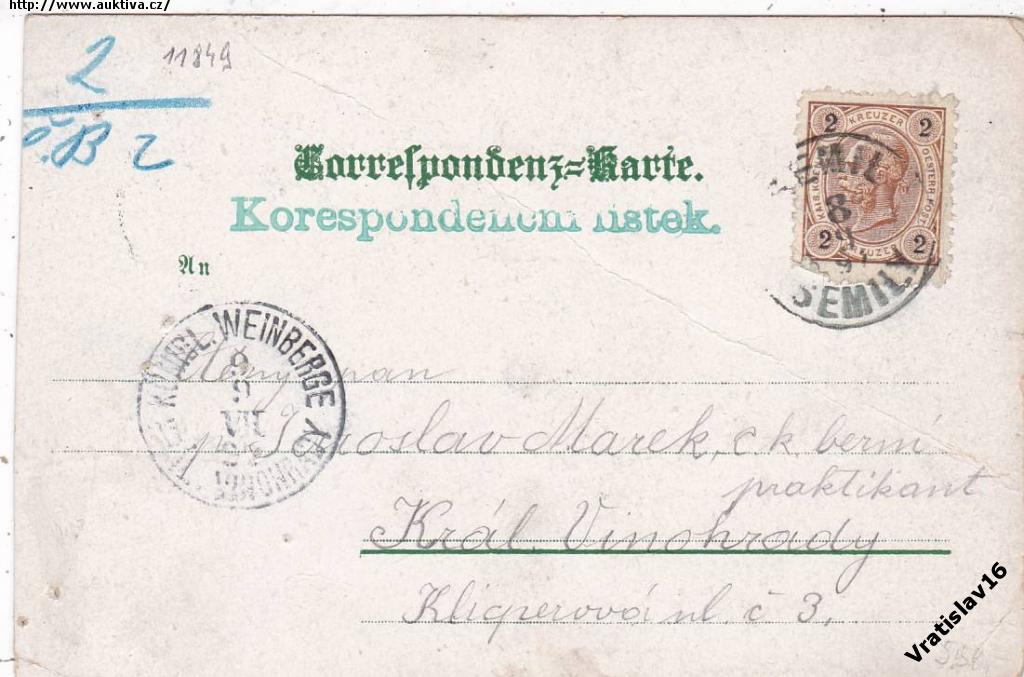 http://www.auktiva.cz/
2
11849
B 2
Correspondenz=Karte.
Korespondenční lístek.
An
2 KREUZER 2
KAIS. KÖN. OESTERR. POST.
2 KREUZER 2
SEMIL
8
91
SEMILY
KÖNIGL. WEINBERGE
9
9
VII
VINOHRADY
pan
p. Jaroslav Marek, c. k. berní
praktikant
Král. Vinohrady
Kliperová ul. č 3.
Vratislav16